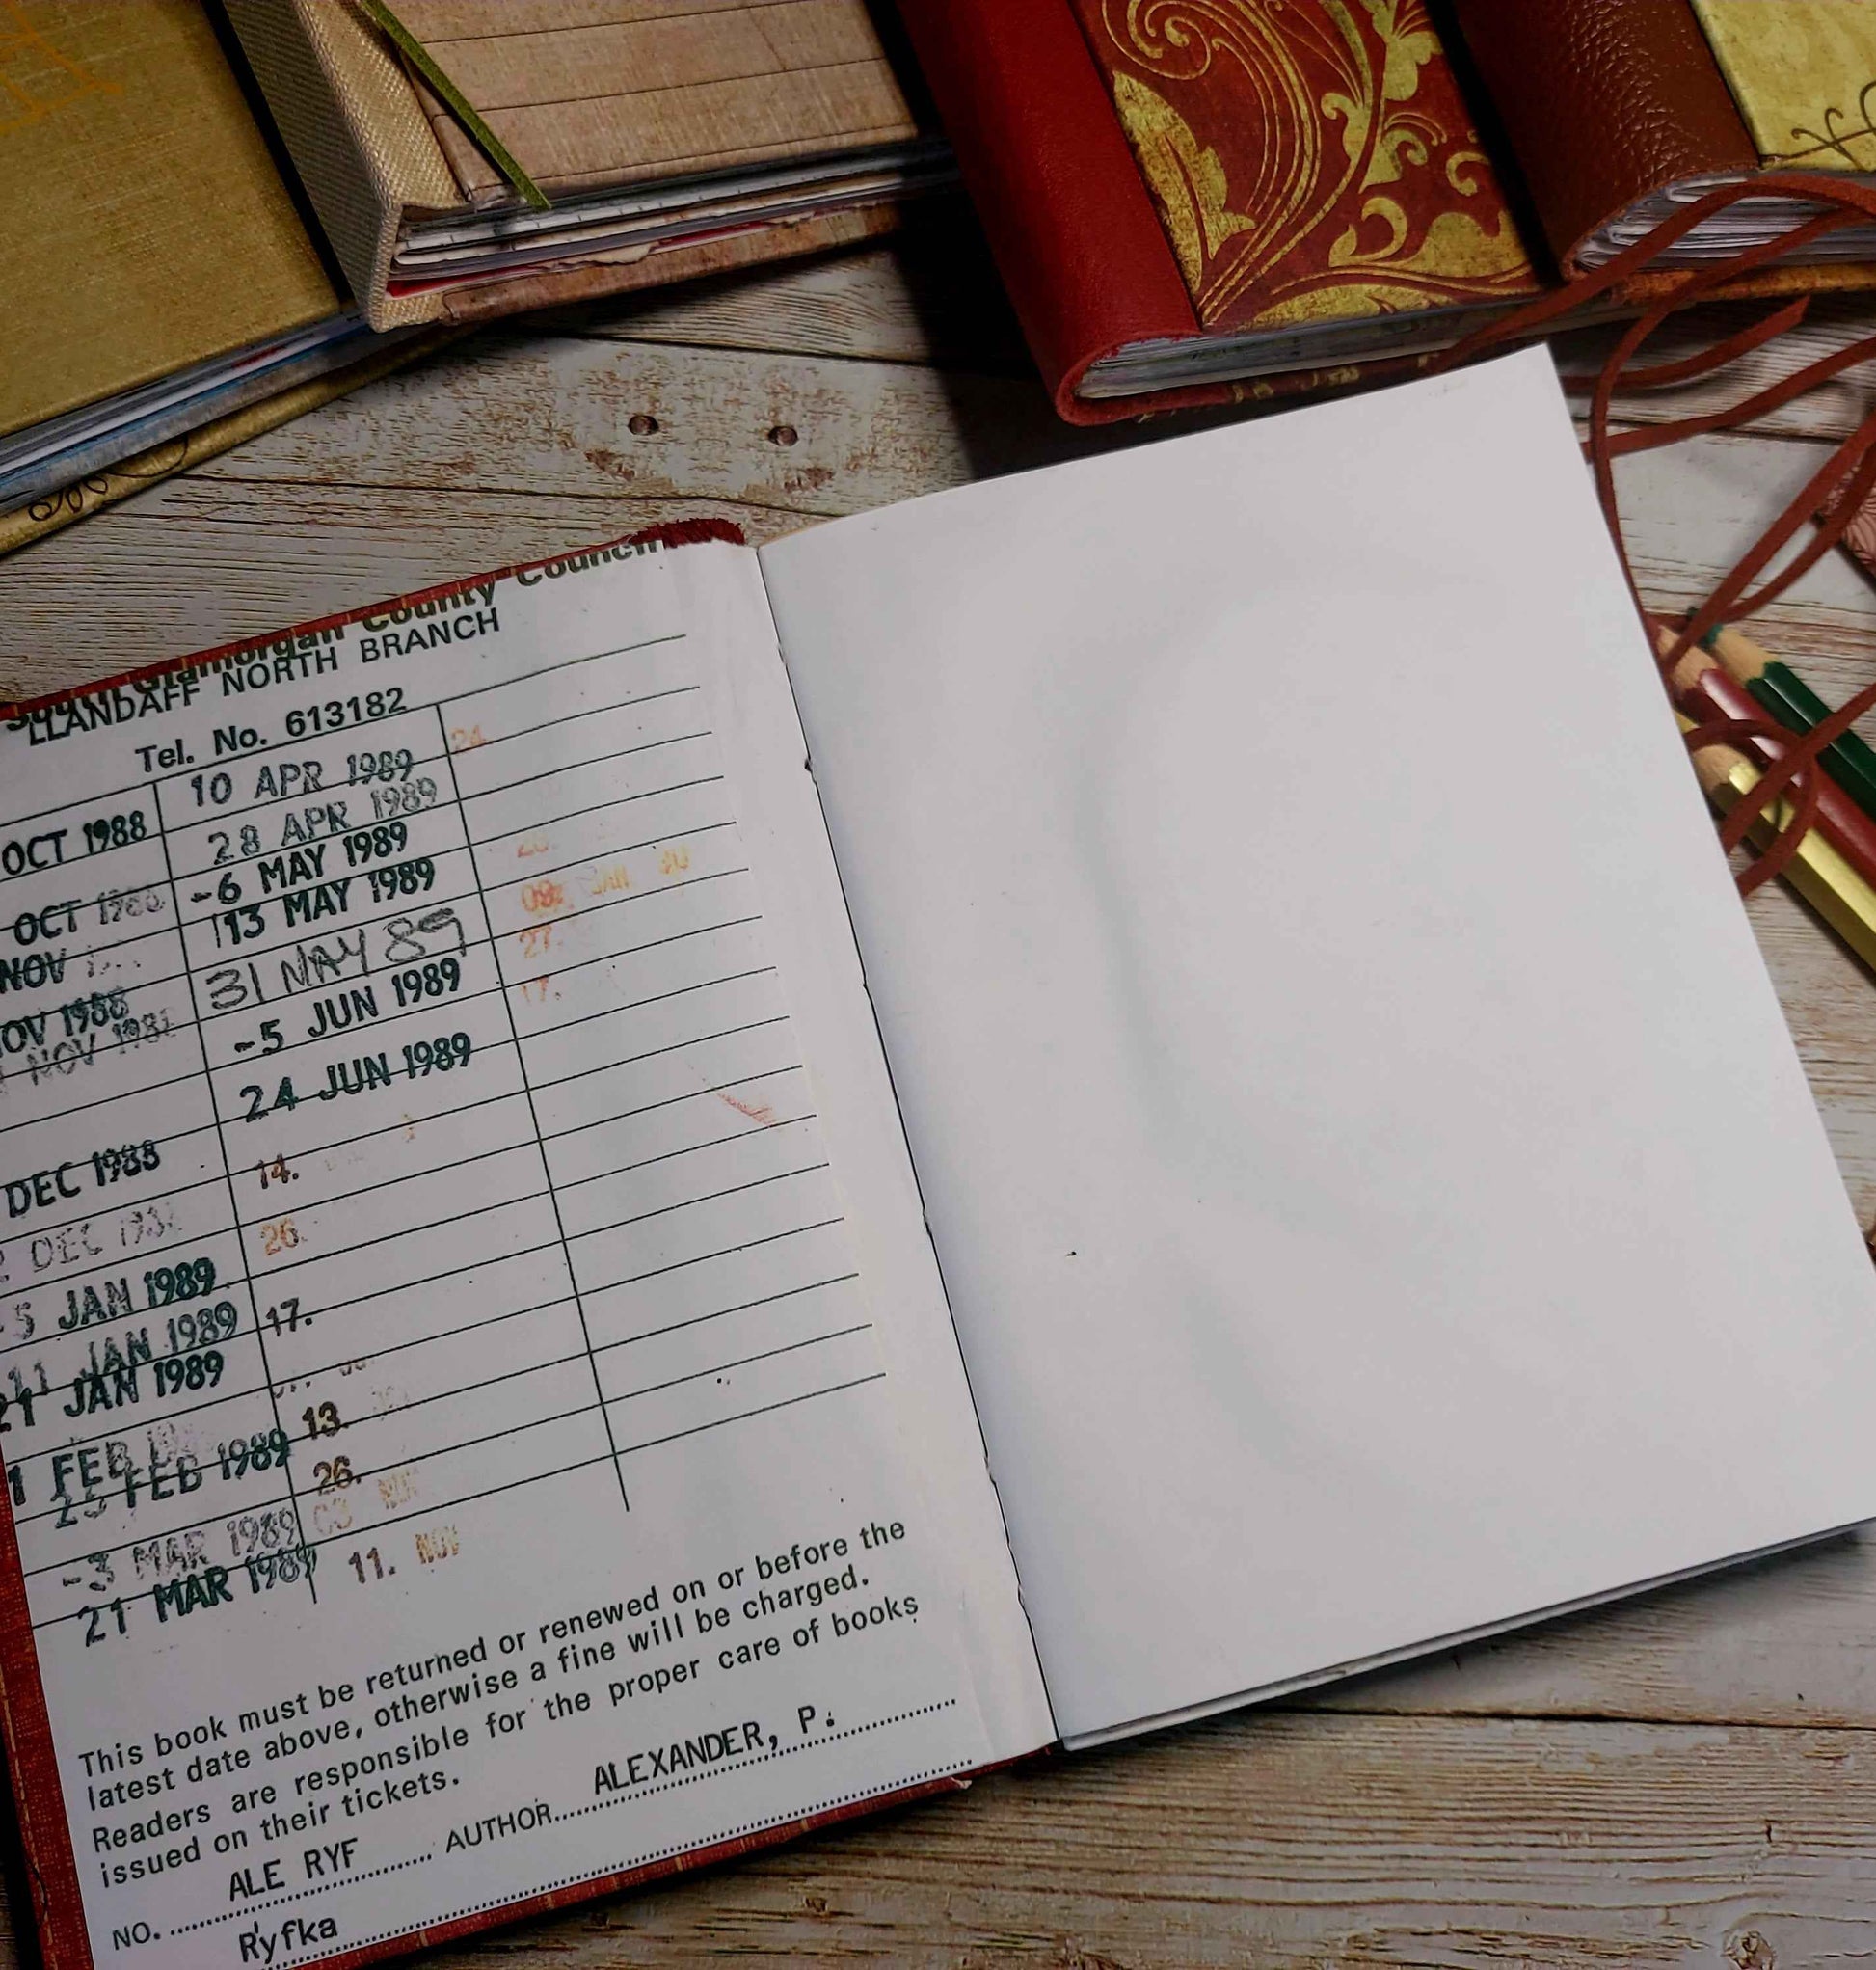 South Glamorgan County Council
LLANDAFF NORTH BRANCH
Tel. No. 613182
OCT 1988
OCT 1988
NOV
NOV 1988
NOV 198
DEC 1988
DEC 198
5 JAN 1989
11 JAN 1989
21 JAN 1989
1 FEB
FEB 1989
-3 MAR 1989
21 MAR 1989
10 APR 1989
28 APR 1989
-6 MAY 1989
13 MAY 1989
31 MAY 89
-5 JUN 1989
24 JUN 1989
14.
26.
17.
13.
26.
03 NOV
11. NOV
24.
09. JAN
27.
17.
This book must be returned or renewed on or before the
latest date above, otherwise a fine will be charged.
Readers are responsible for the proper care of books
issued on their tickets.
NO. ALE RYF AUTHOR ALEXANDER, P.
Ryfka